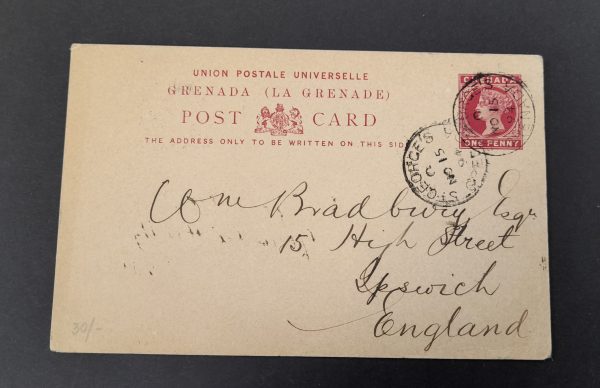 UNION POSTALE UNIVERSELLE
GRENADA (LA GRENADE)
POST CARD
THE ADDRESS ONLY TO BE WRITTEN ON THIS SIDE
GRENADA
ONE PENNY
ST GEORGE'S
Wm Bradbury Esqr
15 High Street
Ipswich
England
30/-